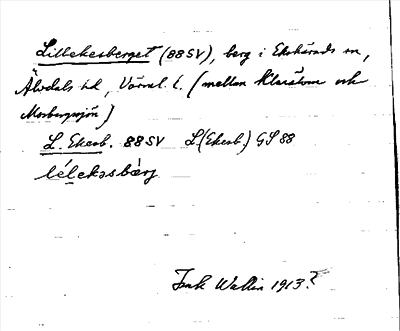 Lillekesberget (88SV), berg i Ekshärads sn,
Älvdals hd, Värml. l. (mellan Klarälven och
Mosbergssjön)
L. Ekesb. 88SV L(Ekesb.) GS 88
lélekəsbærj
Wallin 1913?